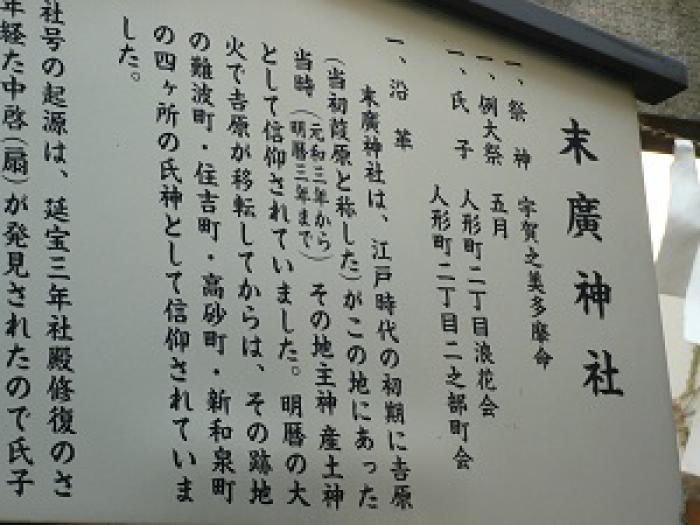 末廣神社
一、祭神　宇賀之美多摩命
一、例大祭　五月
一、氏子　人形町二丁目浪花会
人形町二丁目二之部町会
一、沿革
末廣神社は、江戸時代の初期に吉原
(当初葭原と称した)がこの地にあった
当時(元和三年から明暦三年まで)その地主神産土神
として信仰されていました。明暦の大
火で吉原が移転してからは、その跡地
の難波町・住吉町・高砂町・新和泉町
の四ヶ所の氏神として信仰されていま
した。
社号の起源は、延宝三年社殿修復のさ
年経た中啓(扇)が発見されたので氏子